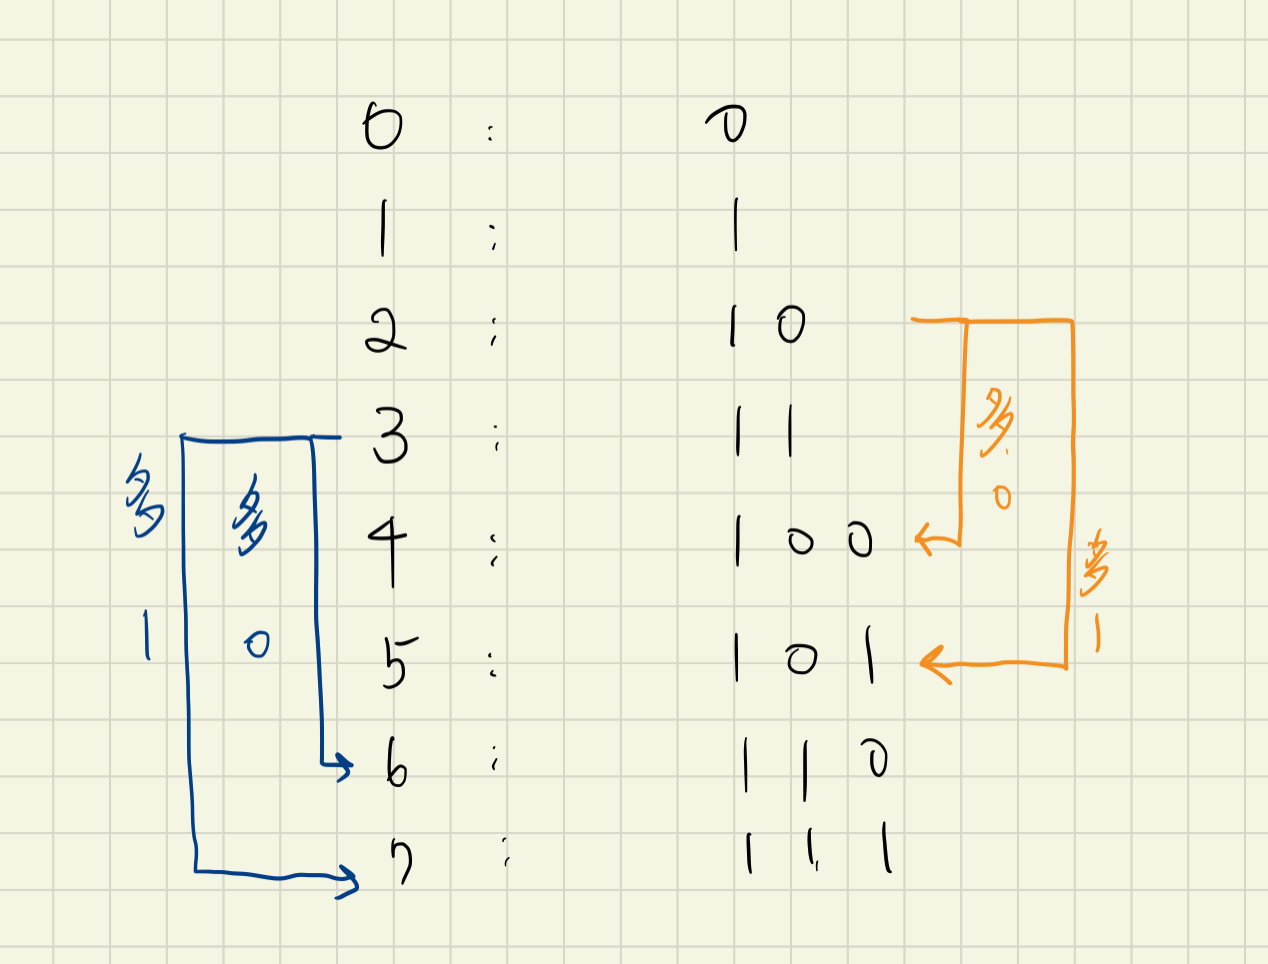 0 : 0
1 : 1
2 : 10
3 : 11
4 : 100
5 : 101
6 : 110
7 : 111
多1
多0
多0
多1